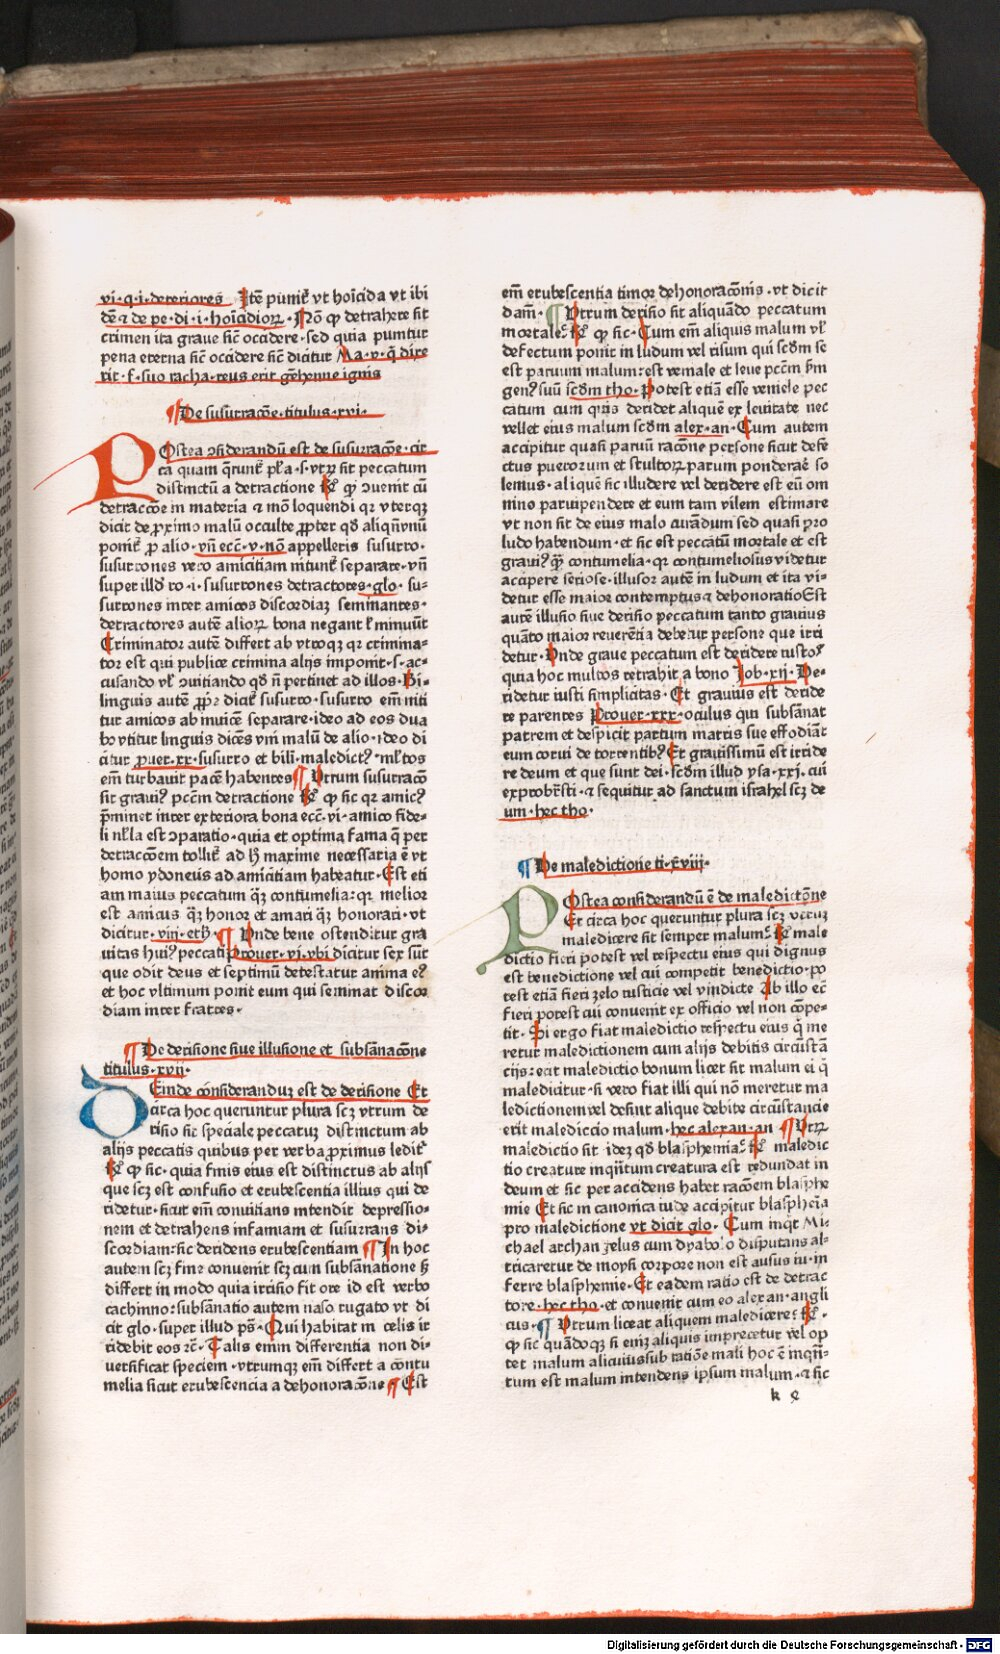 vi·q·i·deteriores· Itē punit᷑ vt hoīcida vt ibi
dē ⁊ de pe·di·i·hoīcidioꝝ· Nō ꝙ detrahere sit
crimen ita graue sic̄ occidere·sed quia puniunt᷑
pena eterna sic̄ occidere sic̄ dicitur Ma·v·q̄ dixe
rit·f·suo racha·reus erit gehenne ignis
¶De susurracōe·titulus·xvi·
POstea ↄsiderandū est de susurracōe·cir
ca quam q̄runt᷑ pl̄a·s·vtꝝ sit peccatum
distinctū a detractione ꝙ ↄuenit cū
detraccōe in materia ⁊ mō loquendi qꝛ vterqꝫ
dicit de ꝓximo malū occulte ꝓpter qd̄ aliqn̄vnū
ponit᷑ ꝓ alio·vn̄ ecc·v·nō appelleris susurro·
susurrones vero amicitiam nitunt᷑ separare·vn̄
super illd̄ ro·i·susurrones detractores·glo·su-
surrones inter amicos discordiaꝫ seminantes·
detractores autē alioꝝ bona negant ł minuūt
Criminator autē differt ab vtroqꝫ qꝛ crimina-
tor est qui publice crimina alijs imponit·s·ac-
cusando vł ↄuitiando qd̄ n̄ pertinet ad illos·Bi-
linguis autē ꝓpꝛ dicit᷑ susurro·susurro em̄ niti
tur amicos ab inuicē separare·ideo ad eos dua
bꝰ vtitur linguis dicēs vni malū de alio·ideo di
citur ꝓuer·xx·susurro et bili·maledictꝰ·ml̓tos
em̄ turbauit pacē habentes ¶ Vtrum susurracō
sit grauiꝰ pcc̄m detractione ꝙ sic qꝛ amicꝰ
p̄minet inter exteriora bona ecc·vi·amico fide-
li nl̓la est ↄparatio·quia et optima fama q̄ per
detraccōem tollit᷑ ad hꝰ maxime necessaria ē vt
homo ydoneus ad amicitiam habeatur·Est eti
am maius peccatum qꝫ contumelia:qꝛ melior
est amicus qꝫ honor et amari qꝫ honorari·vt
dicitur·viij·eth̄· ¶ Vnde bene ostenditur gra
uitas huiꝰ peccati Prouer·vj·vbi dicitur sex sūt
que odit deus et septimū detestatur anima eꝰ
et hoc vltimum ponit eum qui seminat discor
diam inter fratres·
¶ De derisione siue illusione et subsānacōne
titulus·xvij·
DEinde cōnsiderandūꝫ est de derisione Et
circa hoc queruntur plura scꝫ vtrum de
risio sit speciale peccatuꝫ distinctum ab
alijs peccatis quibus per verba ꝓximus ledit᷑
ꝙ sic·quia finis eius est distinctus ab alijs
que scꝫ est confusio et erubescentia illius qui de
ridetur·sicut em̄ conuitians intendit depressio-
nem et detrahens infamiam et susurrans di-
scordiam:sic deridens erubescentiam ¶ In hoc
autem scꝫ fine conuenit scꝫ cum subsānatione sꝫ
differt in modo quia irrisio fit ore id est verbo
cachinno:subsānatio autem naso rugato vt di
cit glo·super illud ps̄·Qui habitat in celis ir
ridebit eos ⁊c̄· Talis enim differentia non di-
uersificat speciem·vtrumqꝫ em̄ differt a contu
melia sicut erubescencia a dehonoracōne ¶ Est
em̄ erubescentia timor dehonoracōnis·vt dicit
dam· ¶ Vtrum derisio sit aliquādo peccatum
mortale: ꝙ sic·Cum em̄ aliquis malum vł
defectum ponit in ludum vel risum qui scd̄m se
est paruum malum:est veniale et leue pcc̄m s̄m
genꝰ suū scd̄m tho·Potest etiā esse veniale pec
catum cum quis deridet aliquē ex leuitate nec
vellet eius malum scd̄m alex·an·Cum autem
accipitur quasi paruū racōne persone sicut defe
ctus puerorum et stultoꝝ parum ponderare so
lemus·aliquē sic illudere vel deridere est eū om
nino paruipendere et eum tam vilem estimare
vt non sit de eius malo curādum sed quasi pro
ludo habendum·et sic est peccatū mortale et est
grauiꝰ qꝫ contumelia·qꝛ contumeliosus videtur
accipere seriose·illusor autē in ludum et ita vi-
detur esse maior contemptus ⁊ dehonoratio Est
autē illusio siue derisio peccatum tanto grauius
quāto maior reuerētia debetur persone que irri
detur·Vnde graue peccatum est deridere iustoꝰ
quia hoc multos retrahit a bono Job·xij·De-
ridetur iusti simplicitas·Et grauius est deride
re parentes Prouer·xxx·oculus qui subsānat
patrem et despicit partum matris sue effodiāt
eum corui de torrentibꝰ Et grauissimū est irride
re deum et que sunt dei·scd̄m illud ysa·xxj·cui
exprobrasti·⁊ sequitur ad sanctum israhel scꝫ de
um·hec tho·
¶ De maledictione ti·xviij·
POstea considerandū ē de maledictōne
Et circa hoc queruntur plura scꝫ vtruꝫ
maledicere sit semper malum: male
dictio fieri potest vel respectu eius qui dignus
est benedictione vel cui competit benedictio·po
test etiā fieri zelo iusticie vel vindicte Ab illo ec̄
fieri potest cui conuenit ex officio vel non cōpe-
tit·Si ergo fiat maledictio respectu eius q̄ me
retur maledictionem cum alijs debitis circūstā
cijs:eat maledictio bonum licet sit malum ei q̄
maledicitur·si vero fiat illi qui nō meretur ma
ledictionem vel desint alique debite circūstancie
erit malediccio malum·hec alexan·an ¶ Vtꝝ
maledictio sit ideꝫ qd̄ blasphemia: maledic
tio creature inqūtum creatura est redundat in
deum et sic per accidens habet racōem blasphe
mie Et sic in canonica iude accipitur blasphēia
pro maledictione vt dicit glo· Cum inqt᷑ Mi-
chael archan gelus cum dyabolo disputans al-
tricaretur de moysi corpore non est ausus iu·in
ferre blasphemie·Et eadem ratio est de detrac
tore·hec tho·et conuenit cum eo alexan·angli
cus·¶ Vtrum liceat aliquem maledicere:
ꝙ sic quādoqꝫ si eniꝫ aliquis imprecetur vel op
tet malum alicui:is sub ratiōe mali hoc ē inqn̄-
tum est malum intendens ipsum malum·⁊ sic
k ę
Digitalisierung gefördert durch die Deutsche Forschungsgemeinschaft - DFG